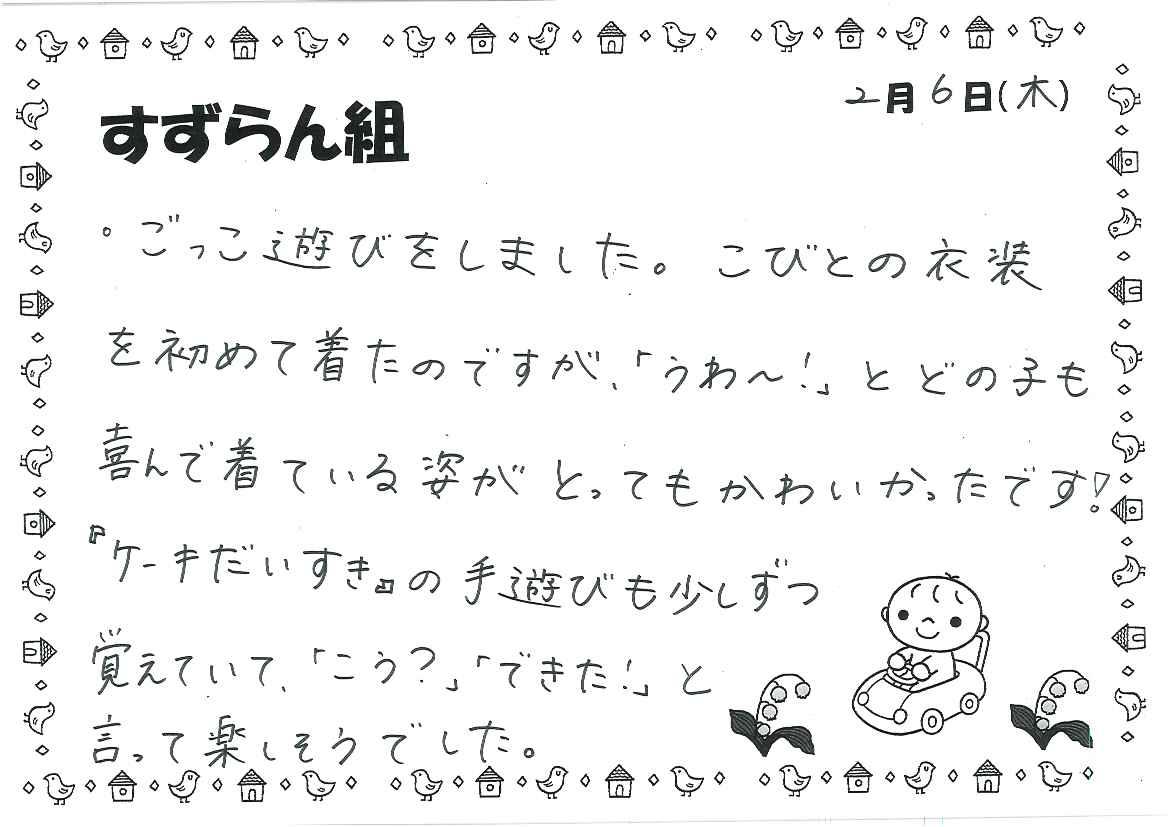 2月6日(木)
すずらん組
・ごっこ遊びをしました。こびとの衣装
を初めて着たのですが、「うわ〜!」とどの子も
喜んで着ている姿がとってもかわいかったです!
『ケーキだいすき』の手遊びも少しずつ
覚えていて、「こう?」「できた!」と
言って楽しそうでした。